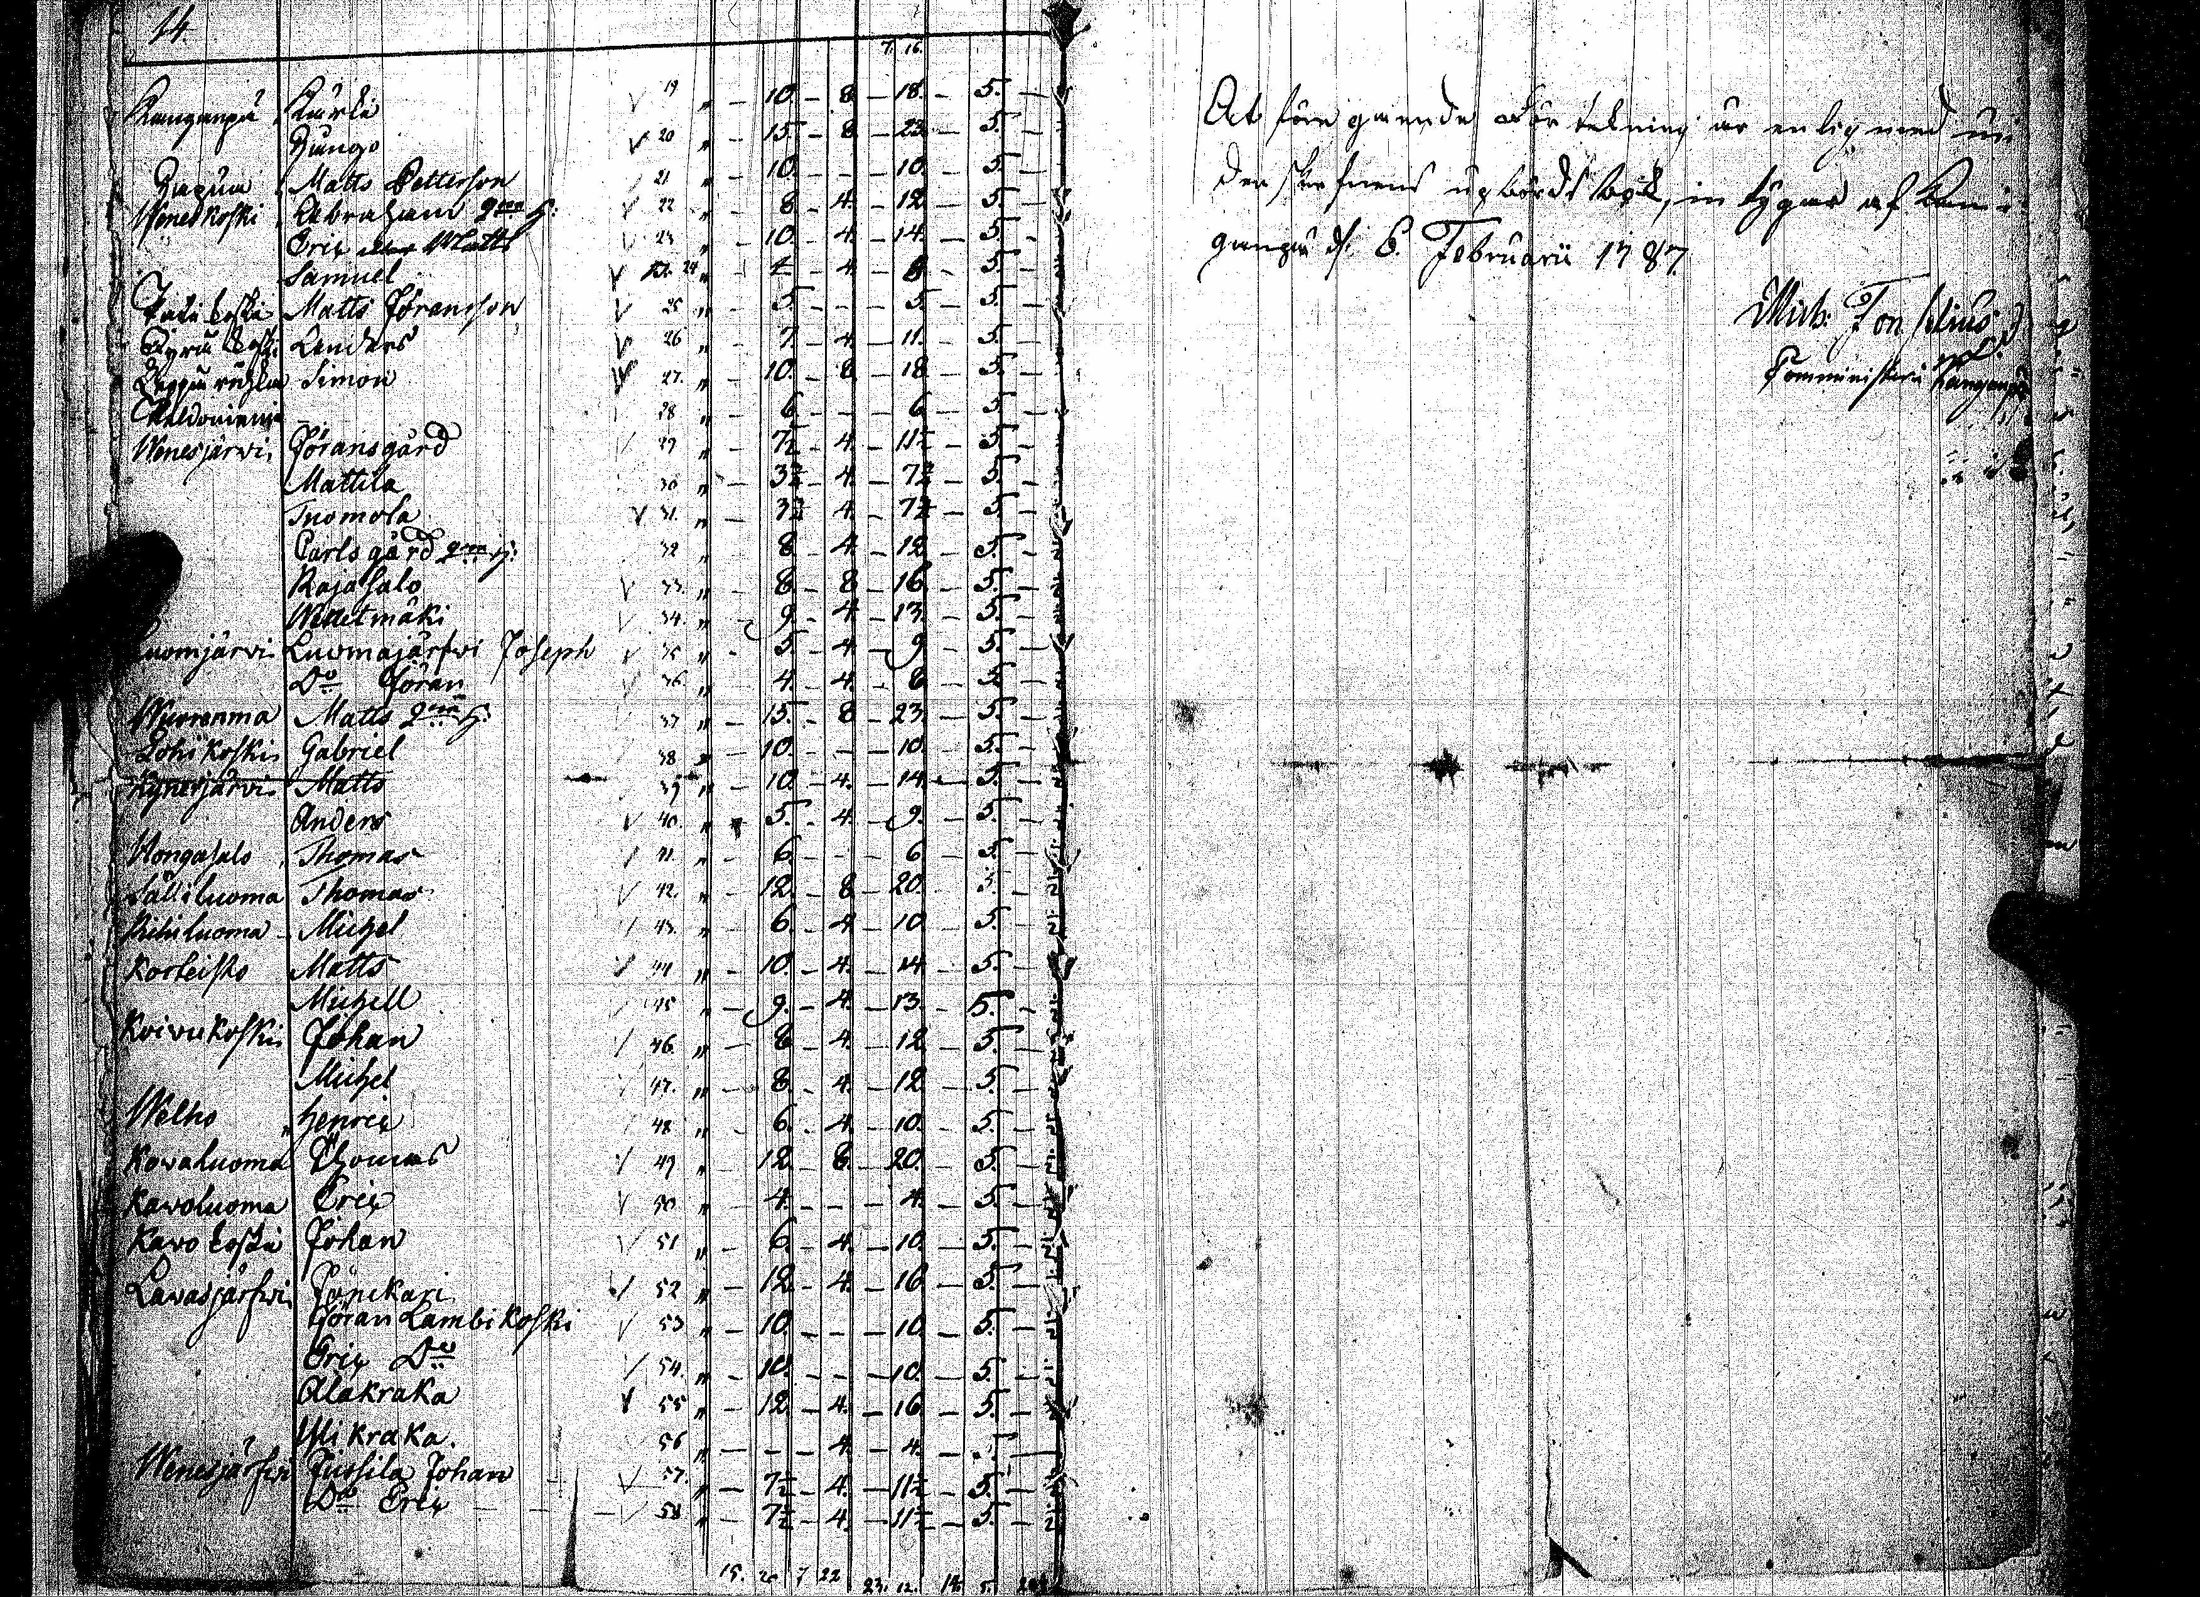 14.
7. 16.
Kanganpä Kärki √ 19 „ – 10. – 8 – 18. – 5. –
Jungo √ 20 „ – 15. – 8 – 23. – 5. –
Matts Petterson √ 21 „ – 10. – – – 10. – 5. –
Weneskoski Abraham √ 22 „ – 8 – 4. – 12 – 5. –
Eric Matts √ 23 „ – 10. – 4. – 14. – 5. –
Samuel √ 24 „ – 4 – 4. – 8 – 5. –
Matts Jöransson √ 25 „ – 5. – – – 5. – 5. –
Kyrä koski Anders √ 26 „ – 7. – 4 – 11. – 5. –
Simon 27. „ – 10. – 8 – 18. – 5. –
28 „ – 6. – – – 6. – 5. –
Wenesjärvi Jöransgård √ 29 „ – 7½ – 4. – 11½ – 5 –
Mattila 30 „ – 3½ – 4. – 7½ – 5. –
Tuomola √ 31. „ – 3½ – 4. – 7½ – 5 –
Carlsgård 32 „ – 8 – 4. – 12 – 5. –
Rajasalo √ 33. „ – 8 – 8 – 16. – 5. –
Wedetmäki √ 34. „ – 9. – 4 – 13. – 5. –
Luomjärvi Luomajärfwi Joseph √ 35 „ – 5. – 4 – 9 – 5. –
Do Jöran √ 36. „ – 4. – 4. – 8 – 5 –
Wuorenma Matts 37 „ – 15. – 8 – 23. – 5. –
Lohikoski Gabriel 38 „ – 10. – – – 10. – 5. –
Kynerjärvi Matts 39 „ – 10. – 4. – 14. – 5. –
Anders √ 40. „ 5. – 4. – 9. – 5. –
Hongasalo Thomas √ 41. „ – 6. – – – 6. – 5. –
Sälliluoma Thomas √ 42. „ – 12. – 8 – 20. 5. –
Riiliuoma Michel √ 43. „ – 6. – 4 – 10. – 5. –
Korteisko Matts √ 44 „ – 10. – 4. – 14 – 5. –
Michell √ 45 „ – 9. – 4. – 13. – 5. –
Koivukoski Johan √ 46. „ – 8 – 4. – 12. – 5. –
Michel √ 47. „ – 8. – 4. – 12 – 5. –
Welho Henric √ 48 „ – 6. – 4. – 10. – 5. –
Kovaluoma Thomas √ 49 „ – 12. – 8. – 20. – 5. –
Kavoluoma Eric √ 50 „ – 4. – – – 4. – 5. –
Kavo koski Johan √ 51 „ – 6. – 4. – 10. – 5. –
Lavasjärfwi Jönikari √ 52 „ – 12 – 4. – 16 – 5. –
Jöran Lambikoski √ 53 „ – 10. – – – 10. – 5. –
Eric Do √ 54. „ – 10. – – – 10. – 5. –
Alakraka √ 55 „ – 12. – 4. – 16. – 5. –
Ylikraka. √ 56 „ – – – 4. – 4. – 5 –
Wenesjärfwi Jussila Johan √ 57. „ – 7½ – 4. – 11½ – 5. –
Do Eric √ 58. „ – 7½ – 4. – 11½ – 5. –
15. 7 22 23. 12. 5.
At före gående Förtekning är enlig med un-
derskrefnens upbördsbok, intygas af Kan-
ganpä d. 6. Februarii 1787.
Mich: Fonselius
Comminister i Kanganpä